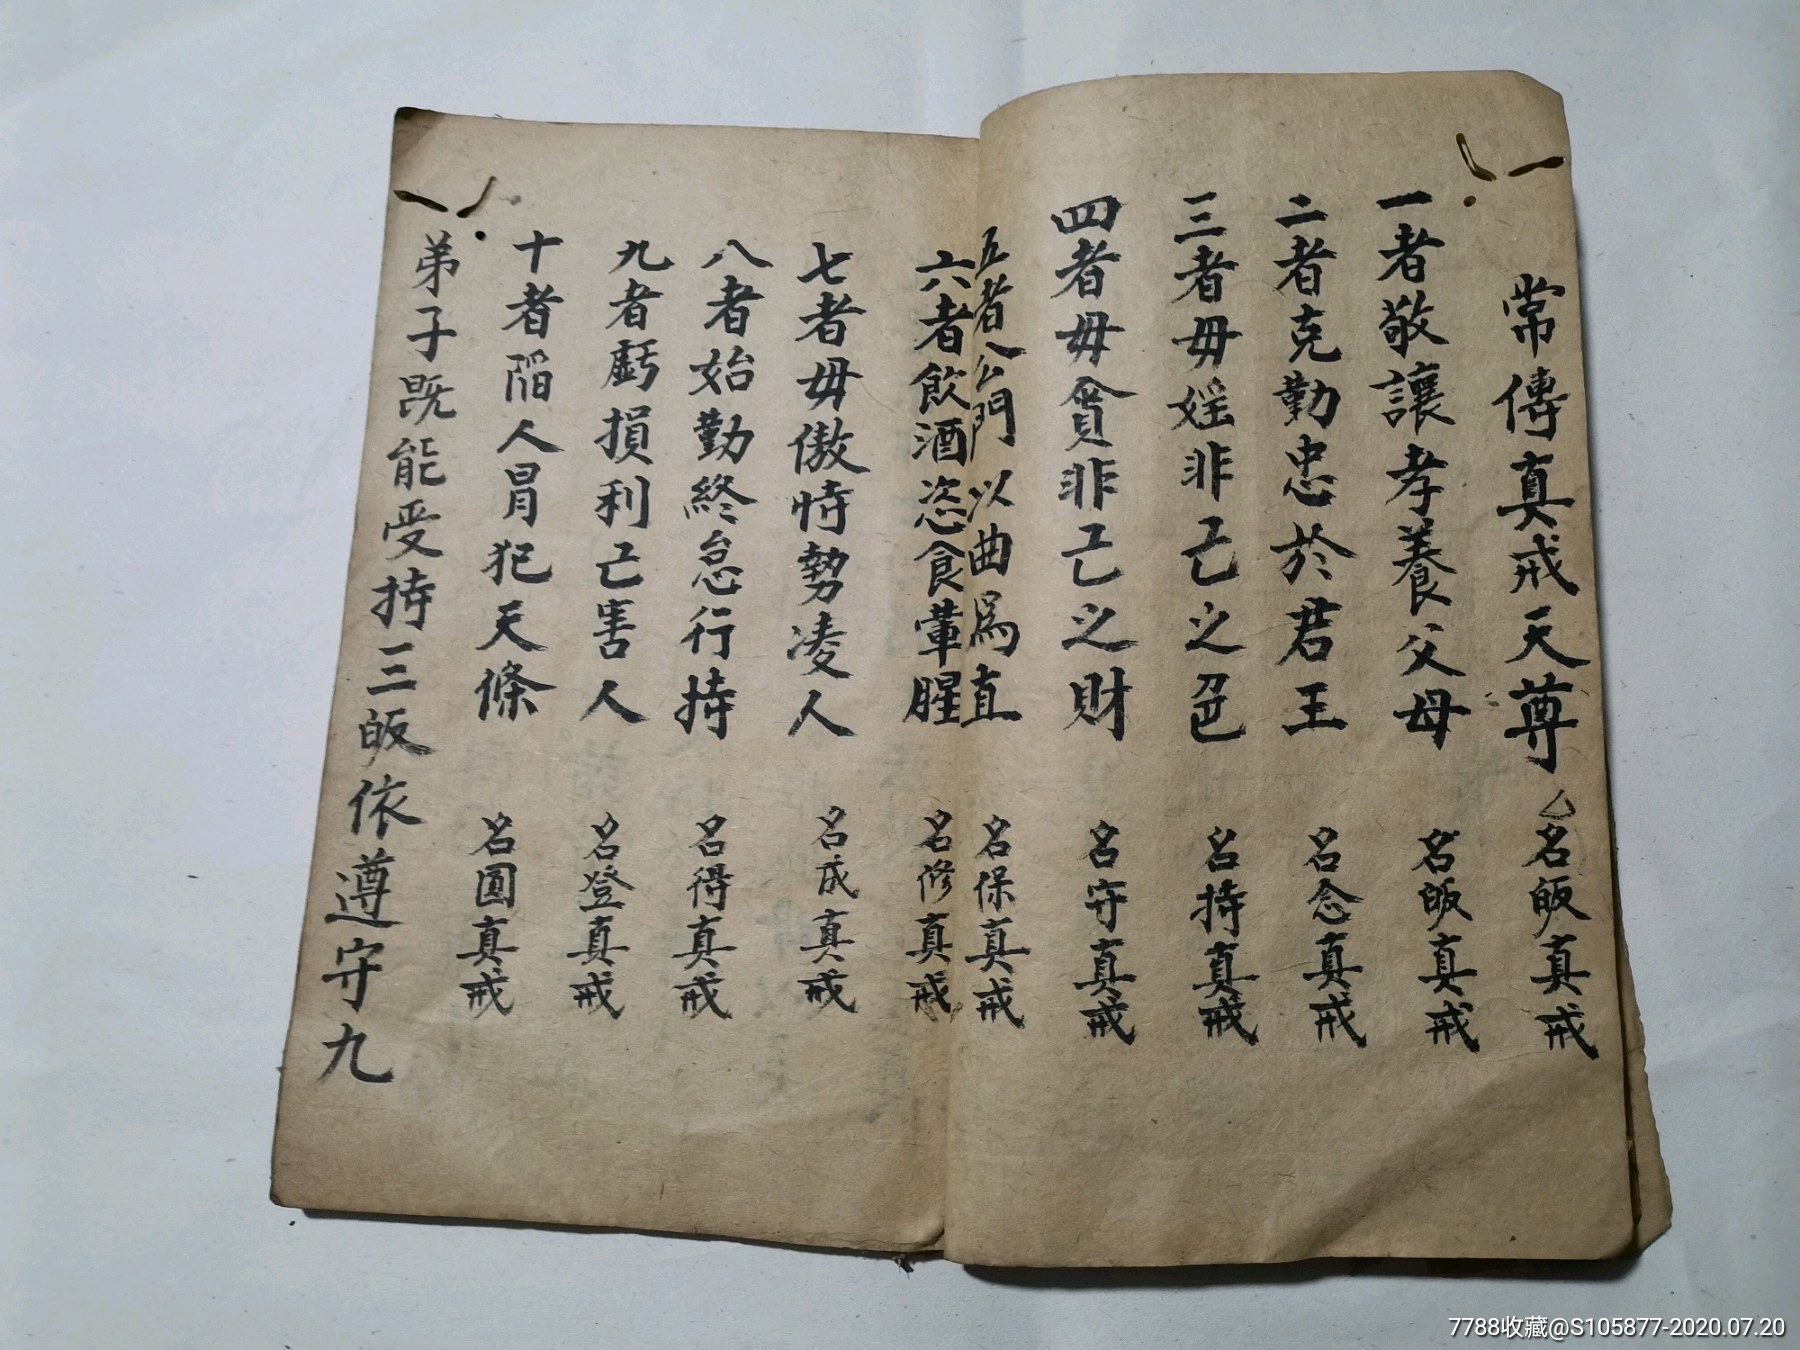 常傳真戒天尊 名皈真戒
一者敬讓孝養父母 名皈真戒
二者克勤忠於君王 名念真戒
三者毋婬非己之色 名持真戒
四者毋貪非己之財 名守真戒
五者公門以曲爲直 名保真戒
六者飲酒恣食葷腥 名修真戒
七者毋傲恃勢凌人 名成真戒
八者始勤終怠行持 名得真戒
九者虧損利己害人 名登真戒
十者陷人冒犯天條 名圓真戒
弟子既能受持三皈依遵守九
7788收藏@S105877-2020.07.20